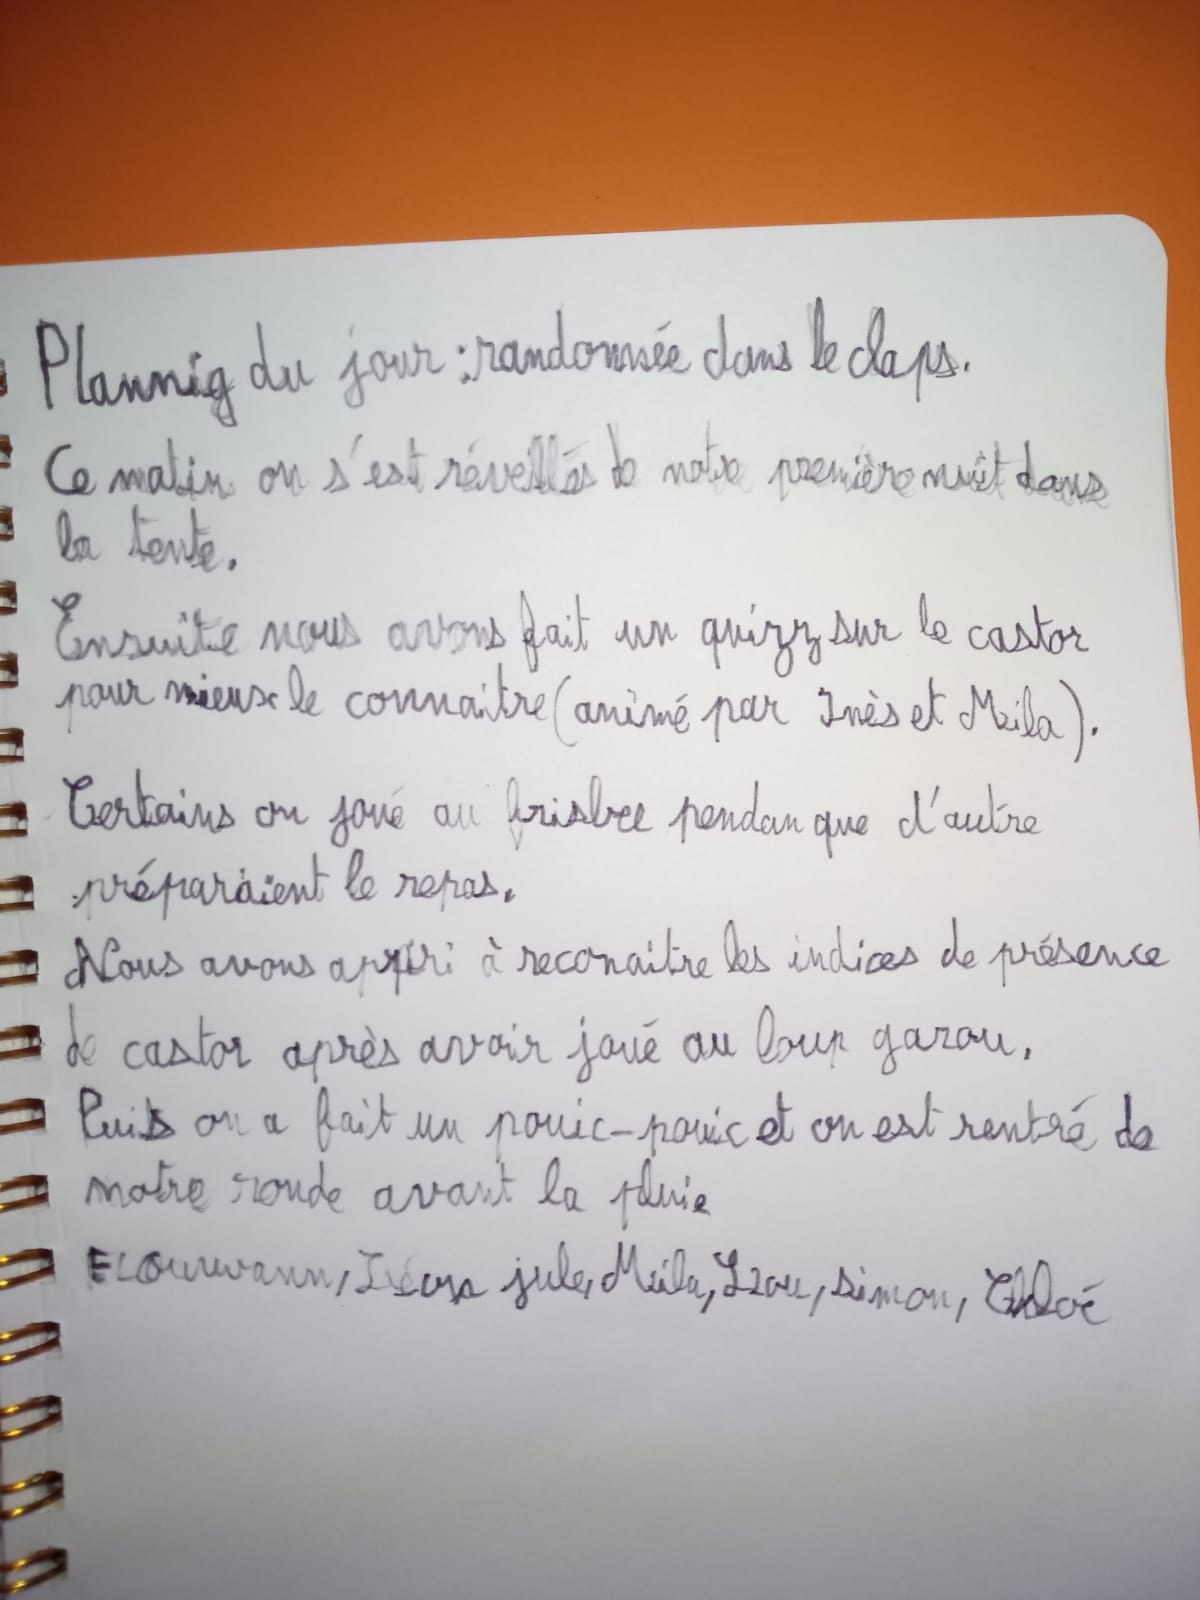 Plannig du jour : randonnée dans le claps.
Ce matin on s'est réveillés de notre première nuit dans
la tente.
Ensuite nous avons fait un quizz sur le castor
pour mieux le connaitre (animé par Inès et Meila).
Certains on joué au frisbee pendan que d'autre
préparaient le repas.
Nous avons appri à reconaitre les indices de présence
de castor après avoir joué au loup garou.
Puis on a fait un pouic-pouic et on est rentré de
notre ronde avant la pluie
jule, Meila, simon, Chloé